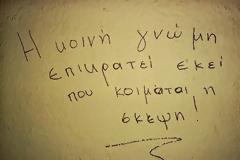 Η κοινή γνώμη
επικρατεί εκεί
που κοιμάται η
σκέψη!